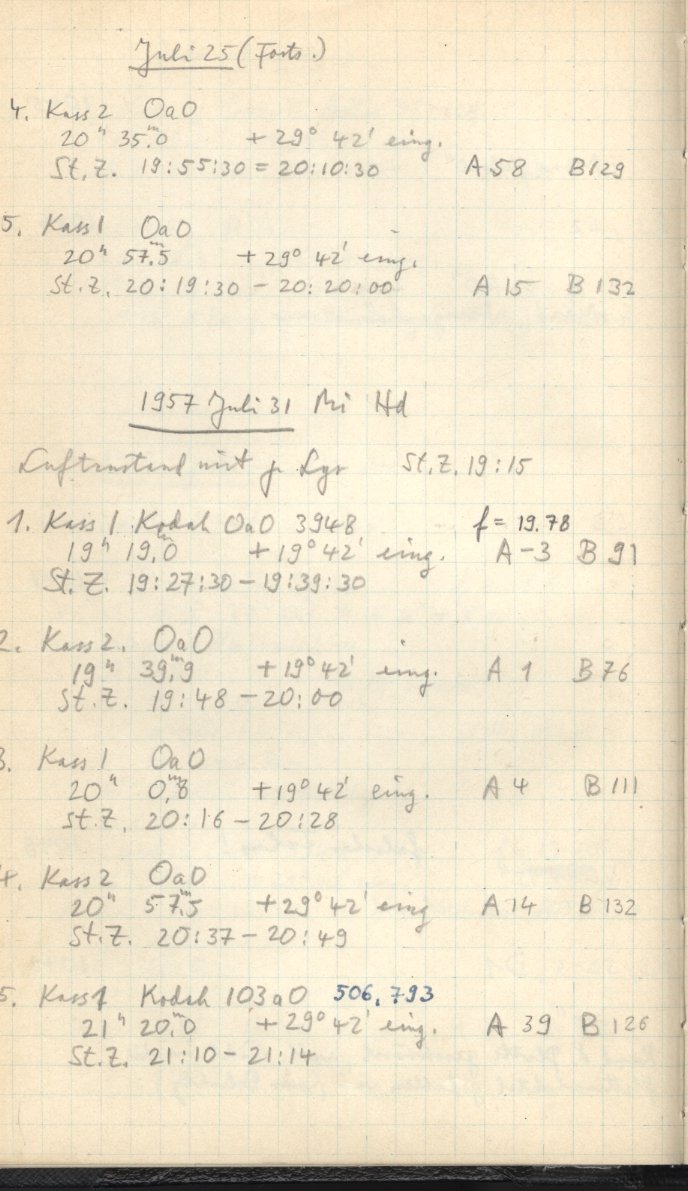 Juli 25 (Forts.)
4. Kass 2 OaO
20ʰ 35ᵐ,0 +29° 42' eing.
St. Z. 19:55:30 = 20:10:30 A 58 B 129
5. Kass 1 OaO
20ʰ 57ᵐ,5 +29° 42' eing.
St. Z. 20:19:30 - 20:20:00 A 15 B 132
1957 Juli 31 Mi Hd
Luftzustand mit γ Lyr St. Z. 19:15
1. Kass 1 Kodak OaO 3948 f = 19.78
19ʰ 19ᵐ,0 +19° 42' eing. A -3 B 91
St. Z. 19:27:30 - 19:39:30
2. Kass 2. OaO
19ʰ 39ᵐ,9 +19° 42' eing. A 1 B 76
St. Z. 19:48 - 20:00
3. Kass 1 OaO
20ʰ 0ᵐ,8 +19° 42' eing. A 4 B 111
St. Z. 20:16 - 20:28
4. Kass 2 OaO
20ʰ 57ᵐ,5 +29° 42' eing A 14 B 132
St. Z. 20:37 - 20:49
5. Kass 1 Kodak 103aO 506,793
21ʰ 20ᵐ,0 +29° 42' eing. A 39 B 126
St. Z. 21:10 - 21:14